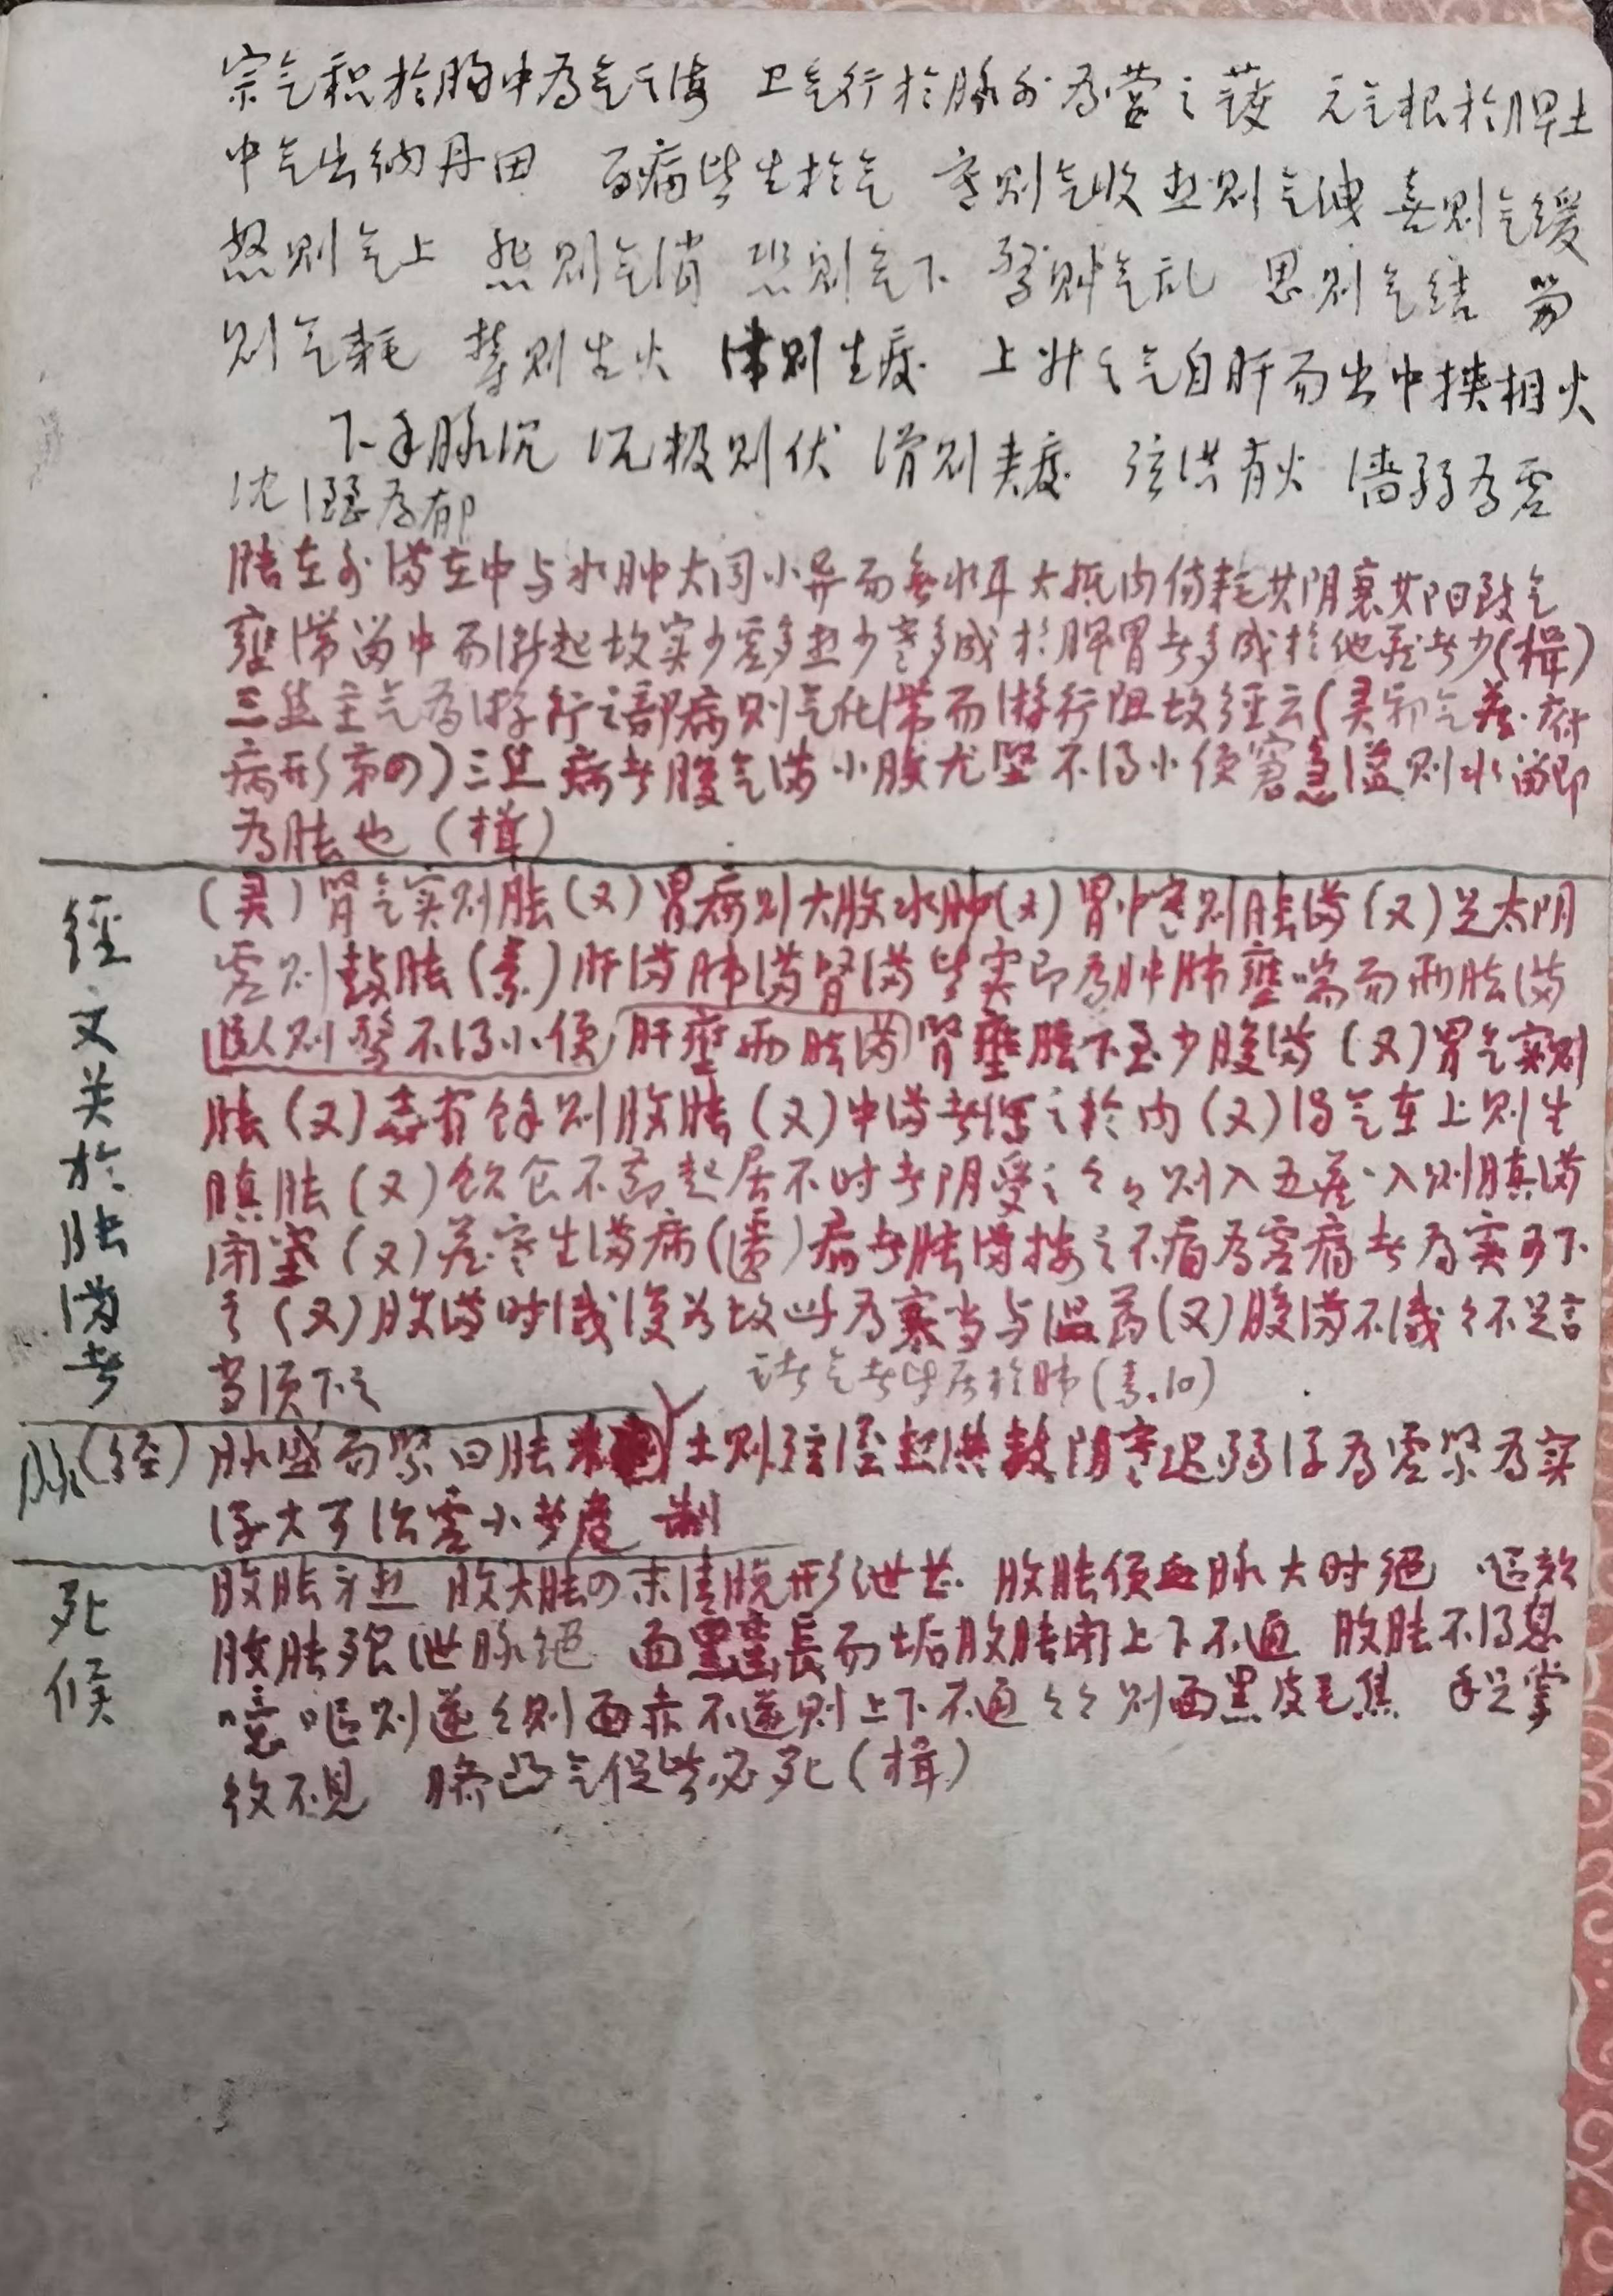 宗气积於胸中为气之海 卫气行於脉外为营之护 元气根於脾土
中气出纳丹田 百病皆生於气 寒则气收 热则气泄 喜则气缓
怒则气上 悲则气消 恐则气下 惊则气乱 思则气结 劳
则气耗 郁则生火 滞则生痰 上升之气自肝而出中挟相火
下手脉沉 沉极则伏 滑则夹痰 弦洪有火 濇弱为虚
沈濇为郁
胀在外满在中与水肿大同小异而无水耳大抵内伤耗其阴衰其阳致气
壅滞留中而渐起故实少虚多热少寒多成於脾胃者多成於他脏者少(楫)
三焦主气为游行之部病则气化滞而游行阻故經云(灵邪气藏府
病形第四)三焦病者腹气满小腹尤坚不得小便窘急溢则水留即
为胀也(楫)
經文关於胀满者
(灵)肾气实则胀(又)胃病则大腹水肿(又)胃中寒则胀满(又)足太阴
虚则鼓胀(素)肝满肺满肾满皆实即为肿肺壅喘而两胠满
卧则惊不得小便 肝壅两胠满 肾壅胠下至少腹满(又)胃气实则
胀(又)志有余则腹胀(又)中满者泻之於内(又)浊气在上则生
䐜胀(又)飲食不节起居不时者阴受之々々则入五藏入则䐜满
闭塞(又)藏寒生满病(匮)病者胀满按之不痛为虚痛者为实可下
之(又)腹满时减復如故此为寒当与温药(又)腹满不减々不足言
当须下之
诸气者皆属於肺(素.10)
脉(经)脉盛而紧曰胀 土则弦 热洪数阴寒迟弱浮为虚紧为实
浮大可治虚小梦
死候
腹胀身热 腹大胀四末清脱形泄甚 腹胀便血脉大时绝 呕欬
腹胀飧泄脉绝 面黑 長而垢腹胀闭上下不通 腹胀不得息
噫呕则逆々则面赤不逆则上下不通々々则面黑皮毛焦 手足掌
纹不见 臍凸气促皆必死(楫)